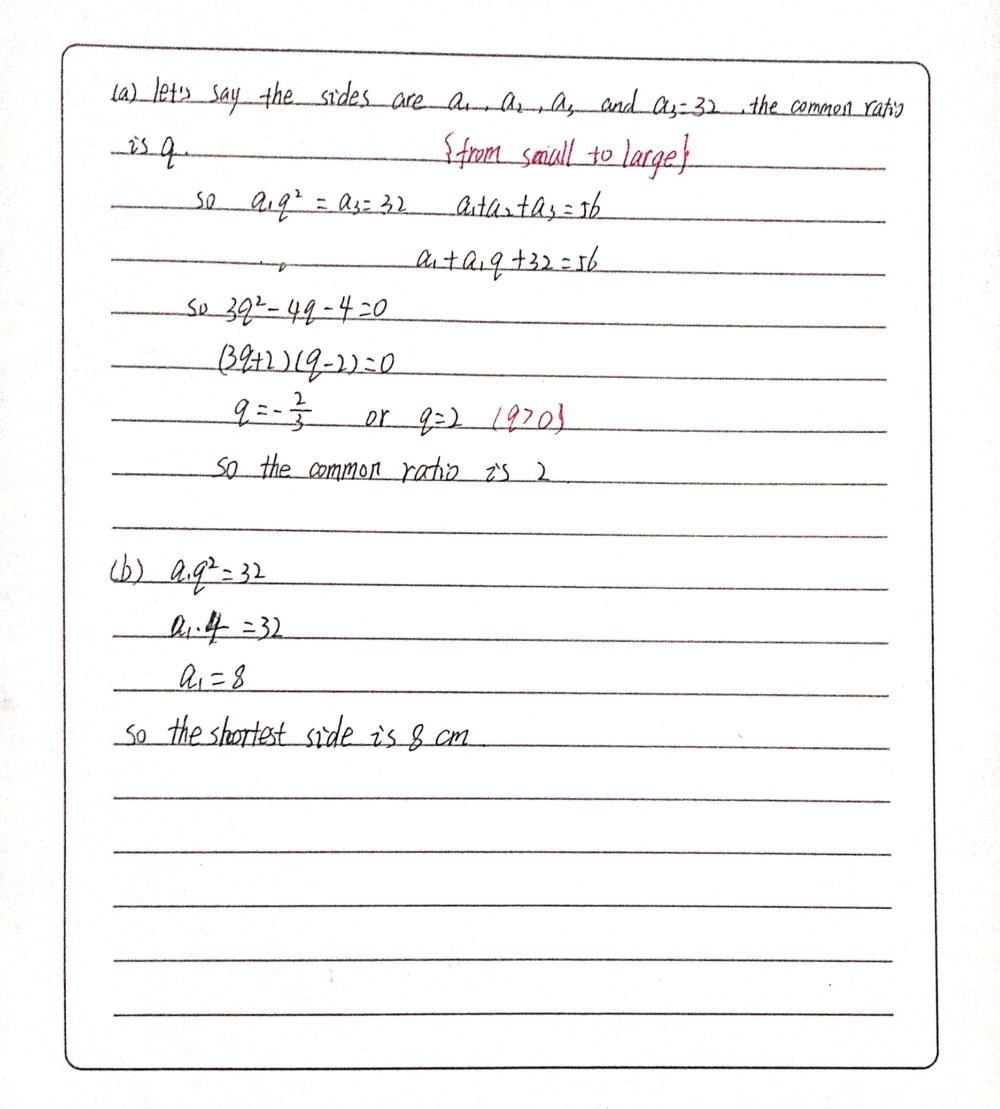 (a) let's say the sides are a₁, a₂, a₃ and a₃=32, the common ratio
is q. {from small to large}
so a₁q² = a₃=32 a₁+a₂+a₃=56
a₁+a₁q+32=56
so 3q²-4q-4=0
(3q+2)(q-2)=0
q=-2/3 or q=2 {q>0}
so the common ratio is 2
(b) a₁q²=32
a₁·4=32
a₁=8
so the shortest side is 8 cm